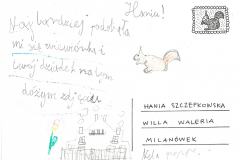 Haniu!
Najbardziej podobała
mi się wiewiórka i
twój dziadek na tym
dożym zdjęciu
HANIA SZCZEPKOWSKA
WILLA WALERIA
MILANÓWEK